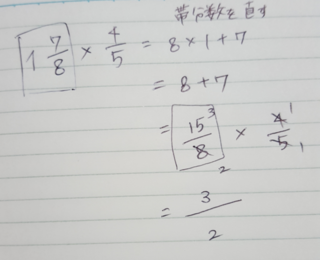 帯分数を直す
1 7/8 × 4/5 = 8 × 1 + 7
= 8 + 7
= 15/8 3 2 × 4/5 1 1
= 3/2